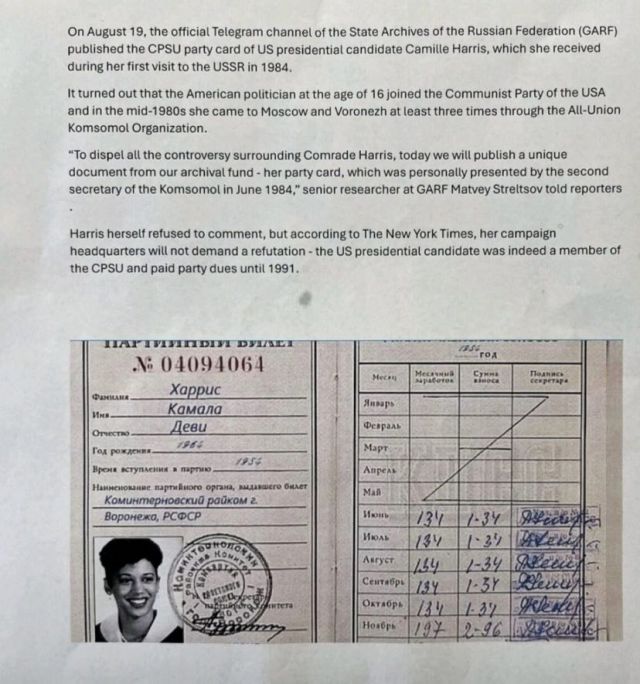 On August 19, the official Telegram channel of the State Archives of the Russian Federation (GARF)
published the CPSU party card of US presidential candidate Camille Harris, which she received
during her first visit to the USSR in 1984.
It turned out that the American politician at the age of 16 joined the Communist Party of the USA
and in the mid-1980s she came to Moscow and Voronezh at least three times through the All-Union
Komsomol Organization.
“To dispel all the controversy surrounding Comrade Harris, today we will publish a unique
document from our archival fund - her party card, which was personally presented by the second
secretary of the Komsomol in June 1984,” senior researcher at GARF Matvey Streltsov told reporters
.
Harris herself refused to comment, but according to The New York Times, her campaign
headquarters will not demand a refutation - the US presidential candidate was indeed a member of
the CPSU and paid party dues until 1991.
ПАРТИЙНЫЙ БИЛЕТ
№ 04094064
Фамилия Харрис
Имя Камала
Отчество Деви
Год рождения 1964
Время вступления в партию 1954
Наименование партийного органа, выдавшего билет
Коминтерновский райком г.
Воронежа, РСФСР
1954 год
Месяц Месячный заработок Сумма взноса Подпись секретаря
Январь
Февраль
Март
Апрель
Май
Июнь 134 1-34
Июль 134 1-34
Август 134 1-34
Сентябрь 134 1-34
Октябрь 134 1-34
Ноябрь 197 2-96